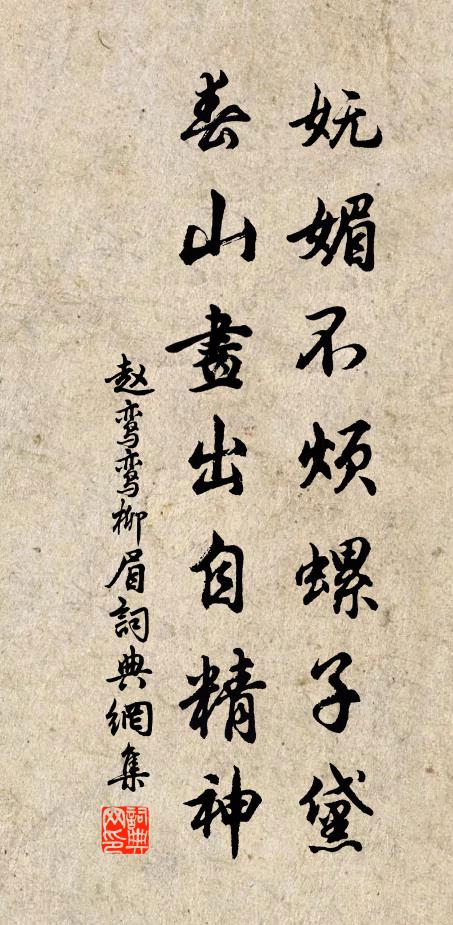 妩媚不烦螺子黛
春山畫出自精神
赵鸾鸾柳眉詞典網集
詞典网印